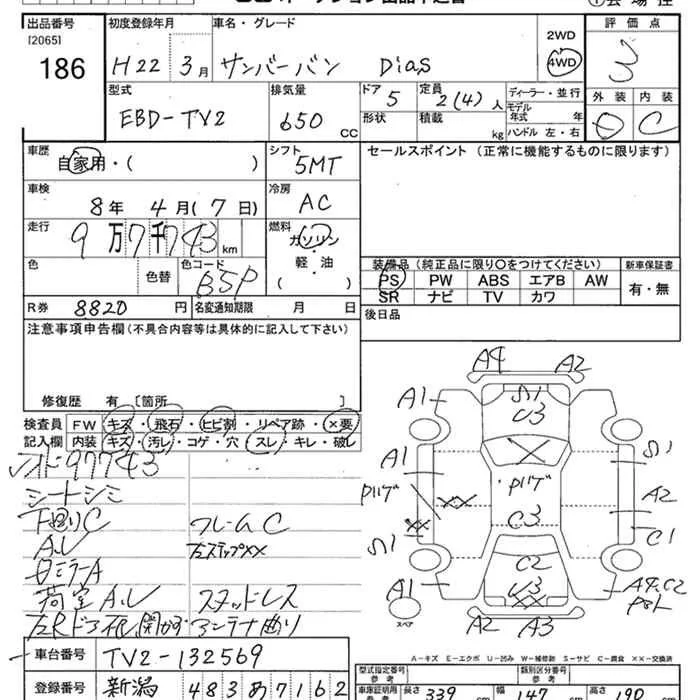 出品番号 初度登録年月 車名・グレード 2WD 評価点
[2065] 186 H22 3月 サンバーバン Dias 4WD 3
型式 排気量 ドア 定員 ディーラー・並行 外装 内装
EBD-TV2 650 CC 5 2(4)人 モデル年式 年 D C
形状 積載 kg ハンドル 左・右
車歴 シフト セールスポイント (正常に機能するものに限ります)
自家用・( ) 5MT
車検 冷房
8年 4月(7日) AC
走行 燃料
9万7千743km ガソリン・軽・油( )
色 色替 色コード B5P
装備品 (純正品に限り○をつけてください) 新車保証書
PS PW ABS エアB AW 有・無
SR ナビ TV カワ
R券 8820円 名変通知期限 月 日
後日品
注意事項申告欄(不具合内容等は具体的に記入して下さい)
修復歴 有 [箇所 ]
検査員 FW キズ・飛石・ヒビ割・リペア跡・×要
記入欄 内装 キズ・汚レ・コゲ・穴・スレ・キレ・破レ
97743
シートシミ
下廻りC フレームC
A,レ 左ステップ××
ミラーA
荷室A,レ スタッドレス
左Rドア 開かず アンテナ曲り
車台番号 TV2-132569
登録番号 新潟 483 め 7162
A4 A2
A1 S1 U3
A1 S1
Pハゲ ×× Pハゲ A2
×× C3 C1
S1 C2
A1 U3 A4,C2
スペア ××
A2 A3
A-キズ E-エクボ U-凹み W-補修跡 S-サビ C-腐食 ××-交換済
型式指定番号 参考 類別区分番号 参考
車庫証明用 参考 長さ 339cm 幅 147cm 高さ 190cm